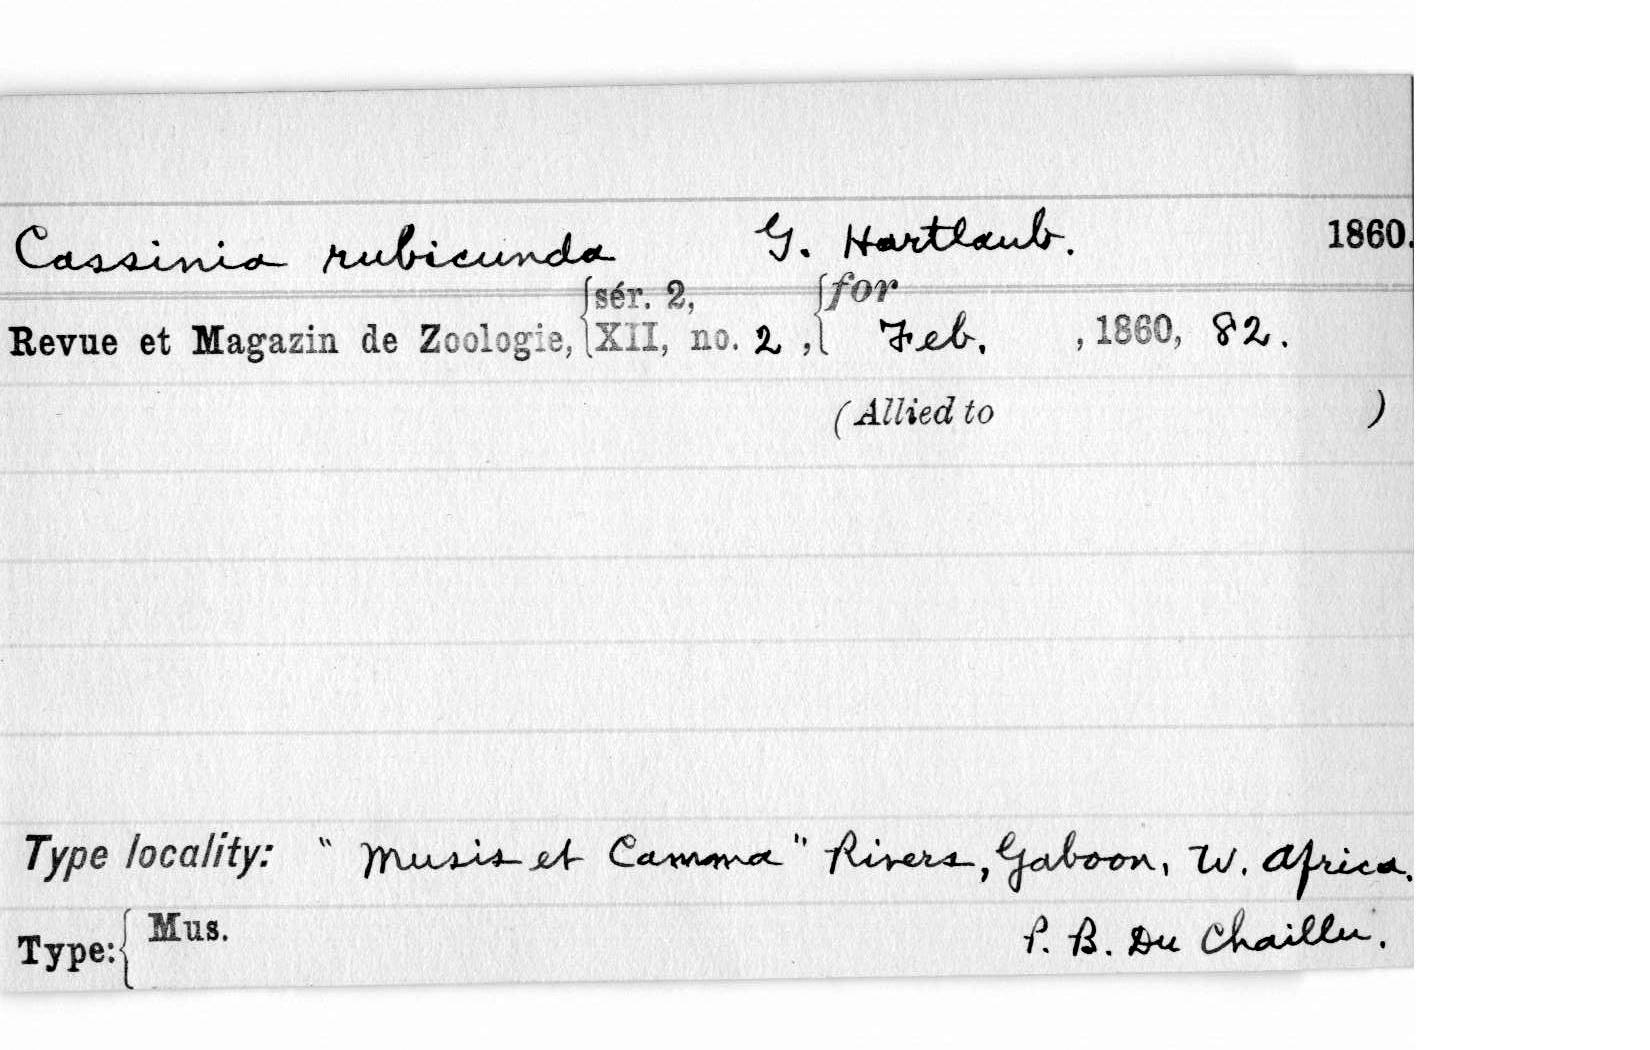 Cassinia rubicunda G. Hartlaub. 1860.
sér. 2, for
Revue et Magazin de Zoologie, XII, no. 2, Feb., 1860, 82.
(Allied to )
Type locality: "Musis et Camma" Rivers, Gaboon, W. Africa.
Type: Mus. P. B. Du Chaillu.